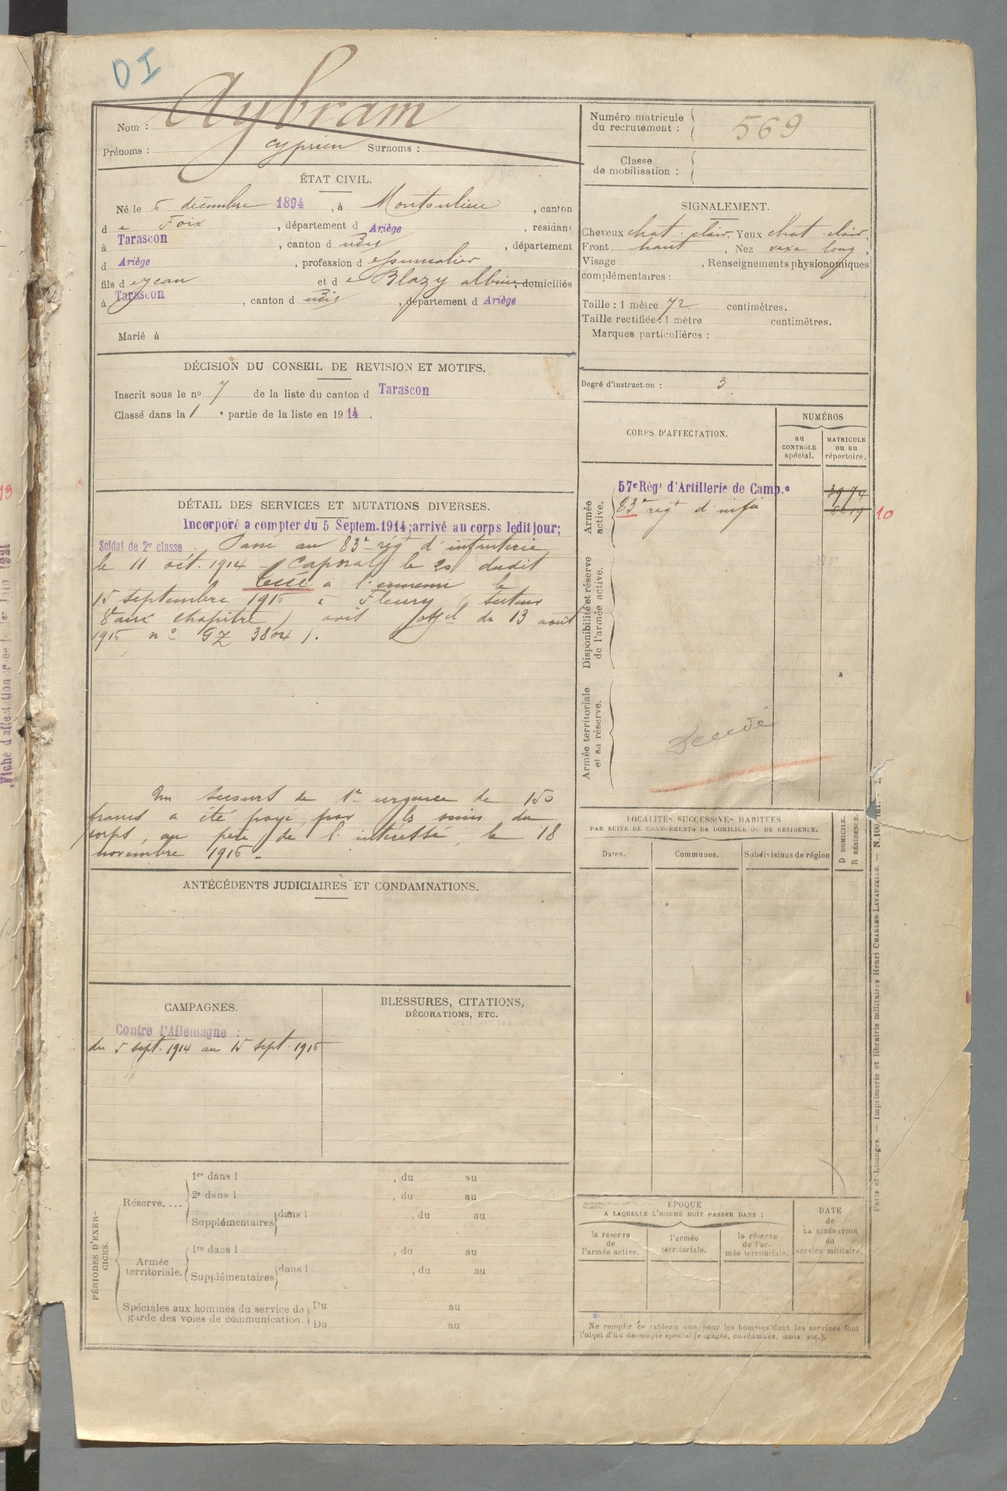 DI
Nom : Aybram
Prénoms : Cyprien Surnoms :
Numéro matricule du recrutement : 569
Classe de mobilisation :
ÉTAT CIVIL.
Né le 5 décembre 1894, à Montoulieu, canton
d e Foix, département d Ariège, résidant
à Tarascon, canton d udit, département
d Ariège, profession d
fils d e Jean et d e Blazy albine domiciliés
à Tarascon, canton d udit, département d Ariège
Marié à
SIGNALEMENT.
Cheveux chat. clair, Yeux chat. clair,
Front haut, Nez vexe long,
Visage , Renseignements physionomiques
complémentaires :
Taille : 1 mètre 72 centimètres.
Taille rectifiée : 1 mètre centimètres.
Marques particulières :
Degré d'instruction : 3
DÉCISION DU CONSEIL DE REVISION ET MOTIFS.
Inscrit sous le no 7 de la liste du canton d Tarascon
Classé dans la 1 e partie de la liste en 1914.
CORPS D'AFFECTATION.
NUMÉROS
au CONTRÔLE spécial.
MATRICULE ou au répertoire.
Armée active.
57e Régt d'Artillerie de Camp.e 3974
83e régt d'infie 10
Disponibilité et réserve de l'armée active.
Armée territoriale et sa réserve.
DÉTAIL DES SERVICES ET MUTATIONS DIVERSES.
Incorporé à compter du 5 Septem. 1914; arrivé au corps ledit jour;
Soldat de 2e classe. Passé au 83e régt d'infanterie
le 11 oct. 1914. Caporal le 20 dudit
tué à l'ennemi le
15 septembre 1915 à Fleury (secteur
8 aux chapitre) avis offel du 13 août
1915 no GZ 3804).
Un secours de 1re urgence de 150
francs a été payé par les soins du
corps, au père de l'intéressé, le 18
novembre 1915.
LOCALITÉS SUCCESSIVES HABITÉES
PAR SUITE DE CHANGEMENTS DE DOMICILE OU DE RÉSIDENCE.
Dates.
Communes.
Subdivisions de région
D DOMICILE.
R RÉSIDENCE.
ANTÉCÉDENTS JUDICIAIRES ET CONDAMNATIONS.
CAMPAGNES.
Contre l'Allemagne :
du 5 sept. 1914 au 15 sept. 1915
BLESSURES, CITATIONS,
DÉCORATIONS, ETC.
PÉRIODES D'EXERCICES.
Réserve....
1re dans l , du au
2e dans l , du au
Supplémentaires dans l , du au
Armée territoriale.
1re dans l , du au
Supplémentaires dans l , du au
Spéciales aux hommes du service de garde des voies de communication.
Du au
Du au
ÉPOQUE
A LAQUELLE L'HOMME DOIT PASSER DANS :
la réserve de l'armée active.
l'armée territoriale.
la réserve de l'armée territoriale.
DATE de LA LIBÉRATION du service militaire.
Ne remplir ce tableau que pour les hommes dont les services font
l'objet d'un décompte spécial (engagés, condamnés, omis, etc.).
Paris et Limoges. — Imprimerie et librairie militaires Henri CHARLES-LAVAUZELLE.